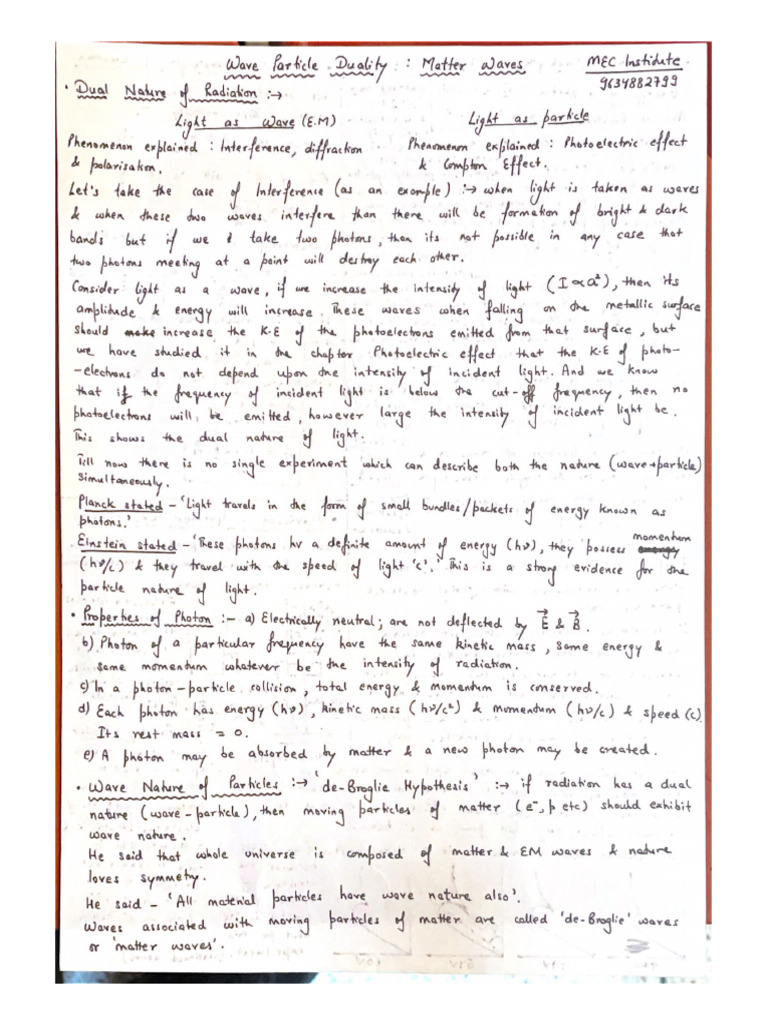 Wave Particle Duality : Matter Waves MEC Institute
9634882799
• Dual Nature of Radiation :→
Light as Wave (E.M) Light as particle
Phenomenon explained : Interference, diffraction & polarisation.
Phenomenon explained : Photoelectric effect & Compton Effect.
Let's take the case of Interference (as an example) :→ when light is taken as waves
& when these two waves interfere than there will be formation of bright & dark
bands but if we take two photons, then its not possible in any case that
two photons meeting at a point will destroy each other.
Consider light as a wave, if we increase the intensity of light (I ∝ a²), then its
amplitude & energy will increase. These waves when falling on the metallic surface
should increase the K.E of the photoelectrons emitted from that surface, but
we have studied it in the chapter Photoelectric effect that the K.E of photo-
-electrons do not depend upon the intensity of incident light. And we know
that if the frequency of incident light is below the cut-off frequency, then no
photoelectrons will be emitted, however large the intensity of incident light be.
This shows the dual nature of light.
Till now there is no single experiment which can describe both the nature (wave+particle)
simultaneously.
Planck stated – 'Light travels in the form of small bundles/packets of energy known as
photons.'
Einstein stated – 'These photons hv a definite amount of energy (hν), they possess momentum
(hν/c) & they travel with the speed of light 'c'.' This is a strong evidence for the
particle nature of light.
• Properties of Photon :– a) Electrically neutral; are not deflected by E⃗ & B⃗.
b) Photon of a particular frequency have the same kinetic mass, same energy &
same momentum whatever be the intensity of radiation.
c) In a photon-particle collision, total energy & momentum is conserved.
d) Each photon has energy (hν), kinetic mass (hν/c²) & momentum (hν/c) & speed (c).
Its rest mass = 0.
e) A photon may be absorbed by matter & a new photon may be created.
• Wave Nature of Particles :→ 'de-Broglie Hypothesis' :→ if radiation has a dual
nature (wave-particle), then moving particles of matter (e⁻, p etc) should exhibit
wave nature.
He said that whole universe is composed of matter & EM waves & nature
loves symmetry.
He said – 'All material particles have wave nature also'.
Waves associated with moving particles of matter are called 'de-Broglie' waves
or 'matter waves'.